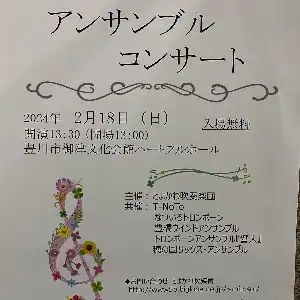 アンサンブル
コンサート
2024年 2月18日（日）
開演13:30（開場13:00）
入場無料
豊川市御津文化会館ハートフルホール
主催：とよかわ吹奏楽団
共催：T-NoTo
なついろトロンボーン
豊橋ウインドアンサンブル
トロンボーンアンサンブル
穂の国サックス・アンサンブル